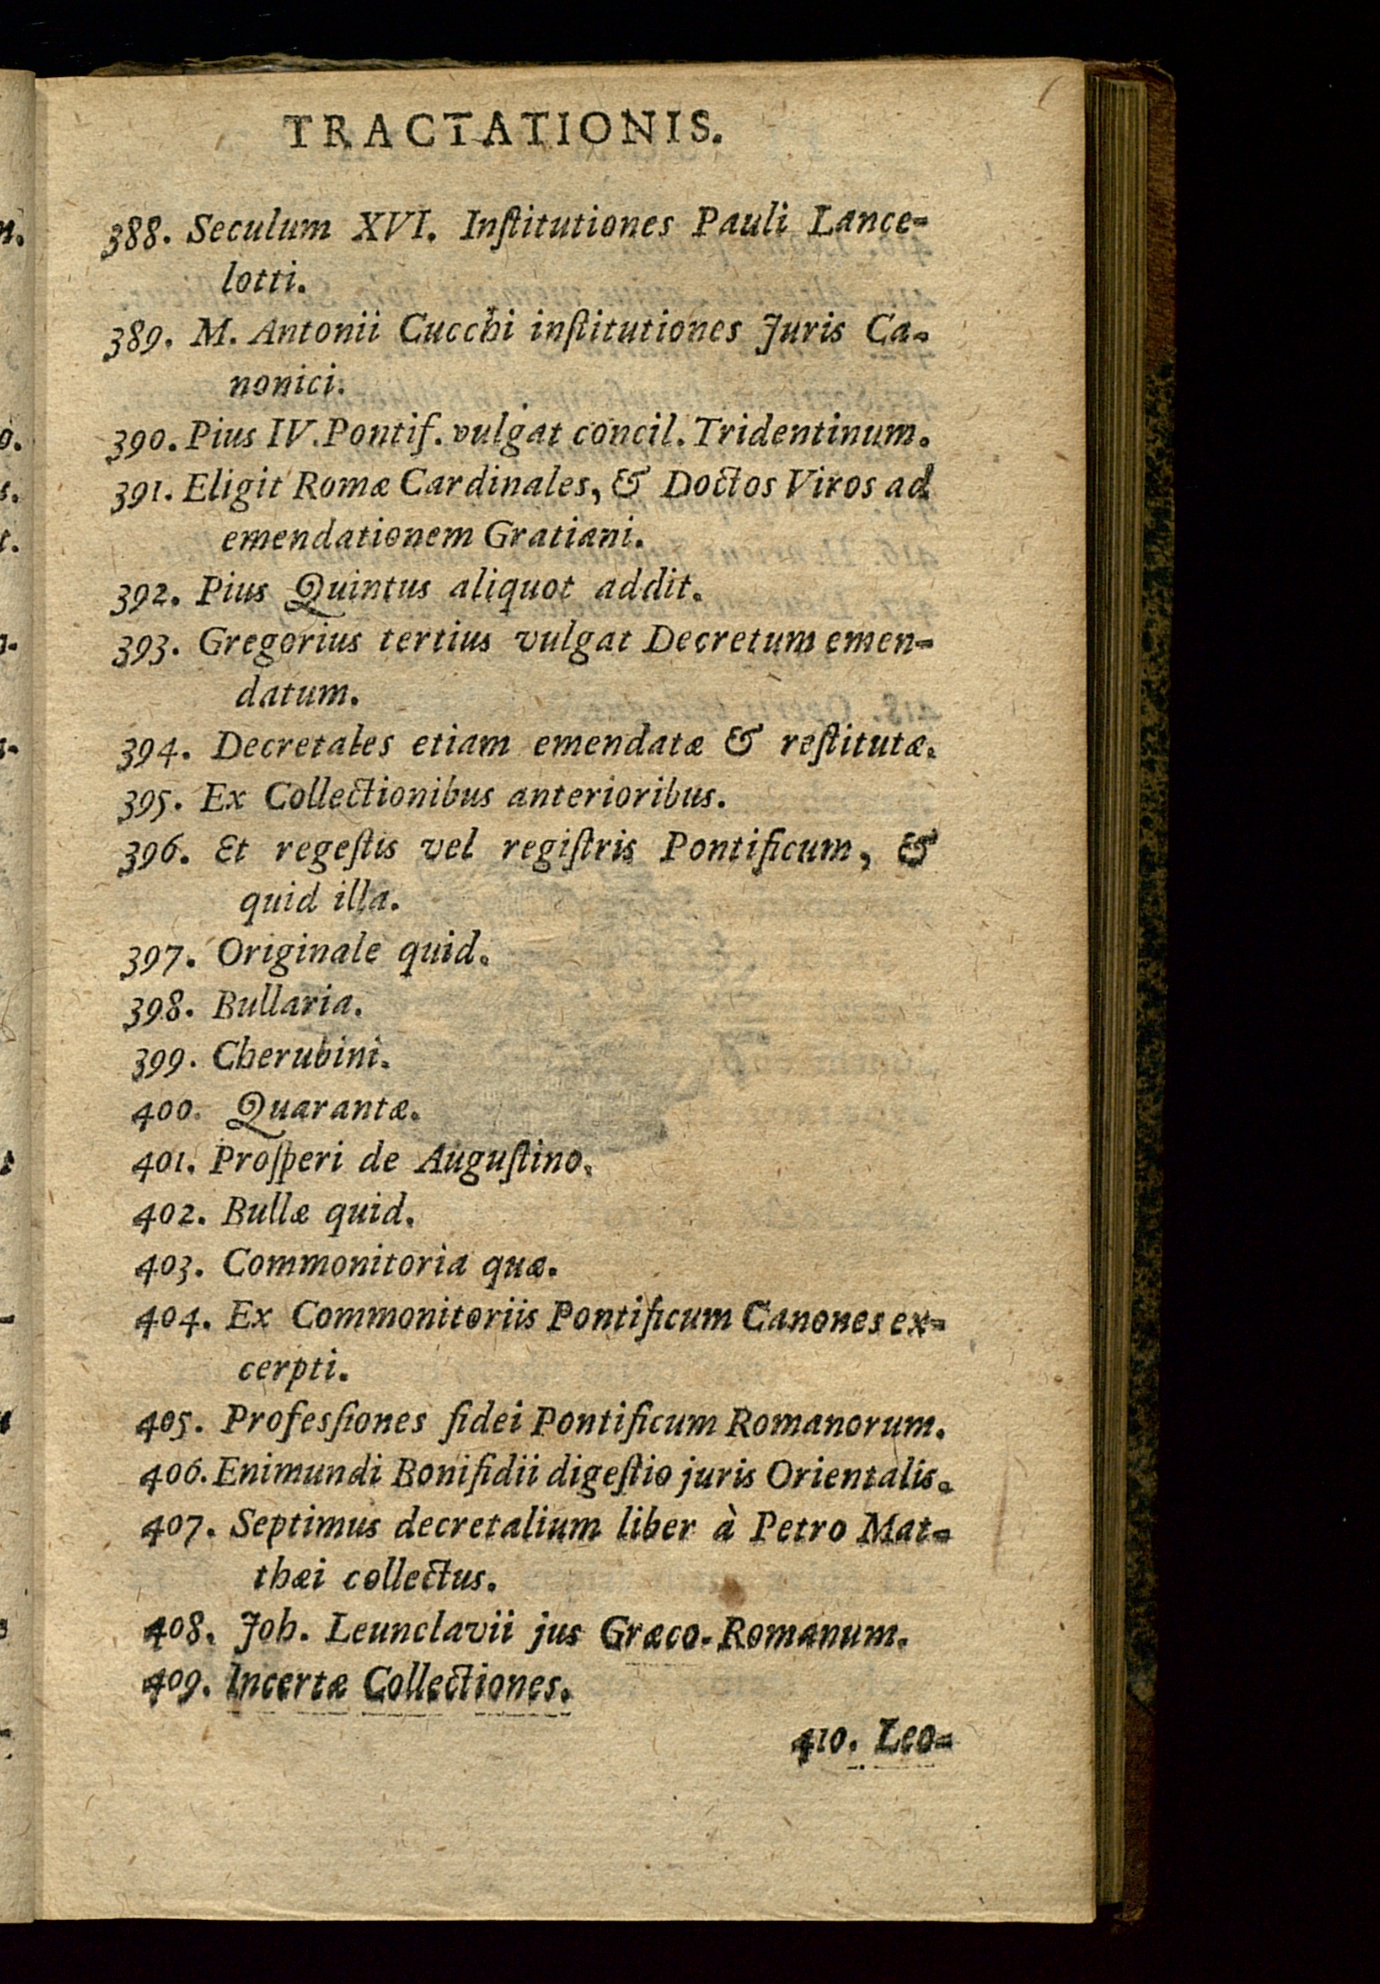 TRACTATIONIS.
388. Seculum XVI. Institutiones Pauli Lance-
lotti.
389. M. Antonii Cucchi institutiones Juris Ca-
nonici.
390. Pius IV. Pontif. vulgat concil. Tridentinum.
391. Eligit Romæ Cardinales, & Doctos Viros ad
emendationem Gratiani.
392. Pius Quintus aliquot addit.
393. Gregorius tertius vulgat Decretum emen-
datum.
394. Decretales etiam emendatæ & restitutæ.
395. Ex Collectionibus anterioribus.
396. Et regestis vel registris Pontificum, &
quid illa.
397. Originale quid.
398. Bullaria.
399. Cherubini.
400. Quarantæ.
401. Prosperi de Augustino.
402. Bullæ quid.
403. Commonitoria quæ.
404. Ex Commonitoriis Pontificum Canones ex-
cerpti.
405. Professiones fidei Pontificum Romanorum.
406. Enimundi Bonifidii digestio juris Orientalis.
407. Septimus decretalium liber à Petro Mat-
thæi collectus.
408. Joh. Leunclavii jus Græco-Romanum.
409. Incertæ Collectiones.
410. Leo-